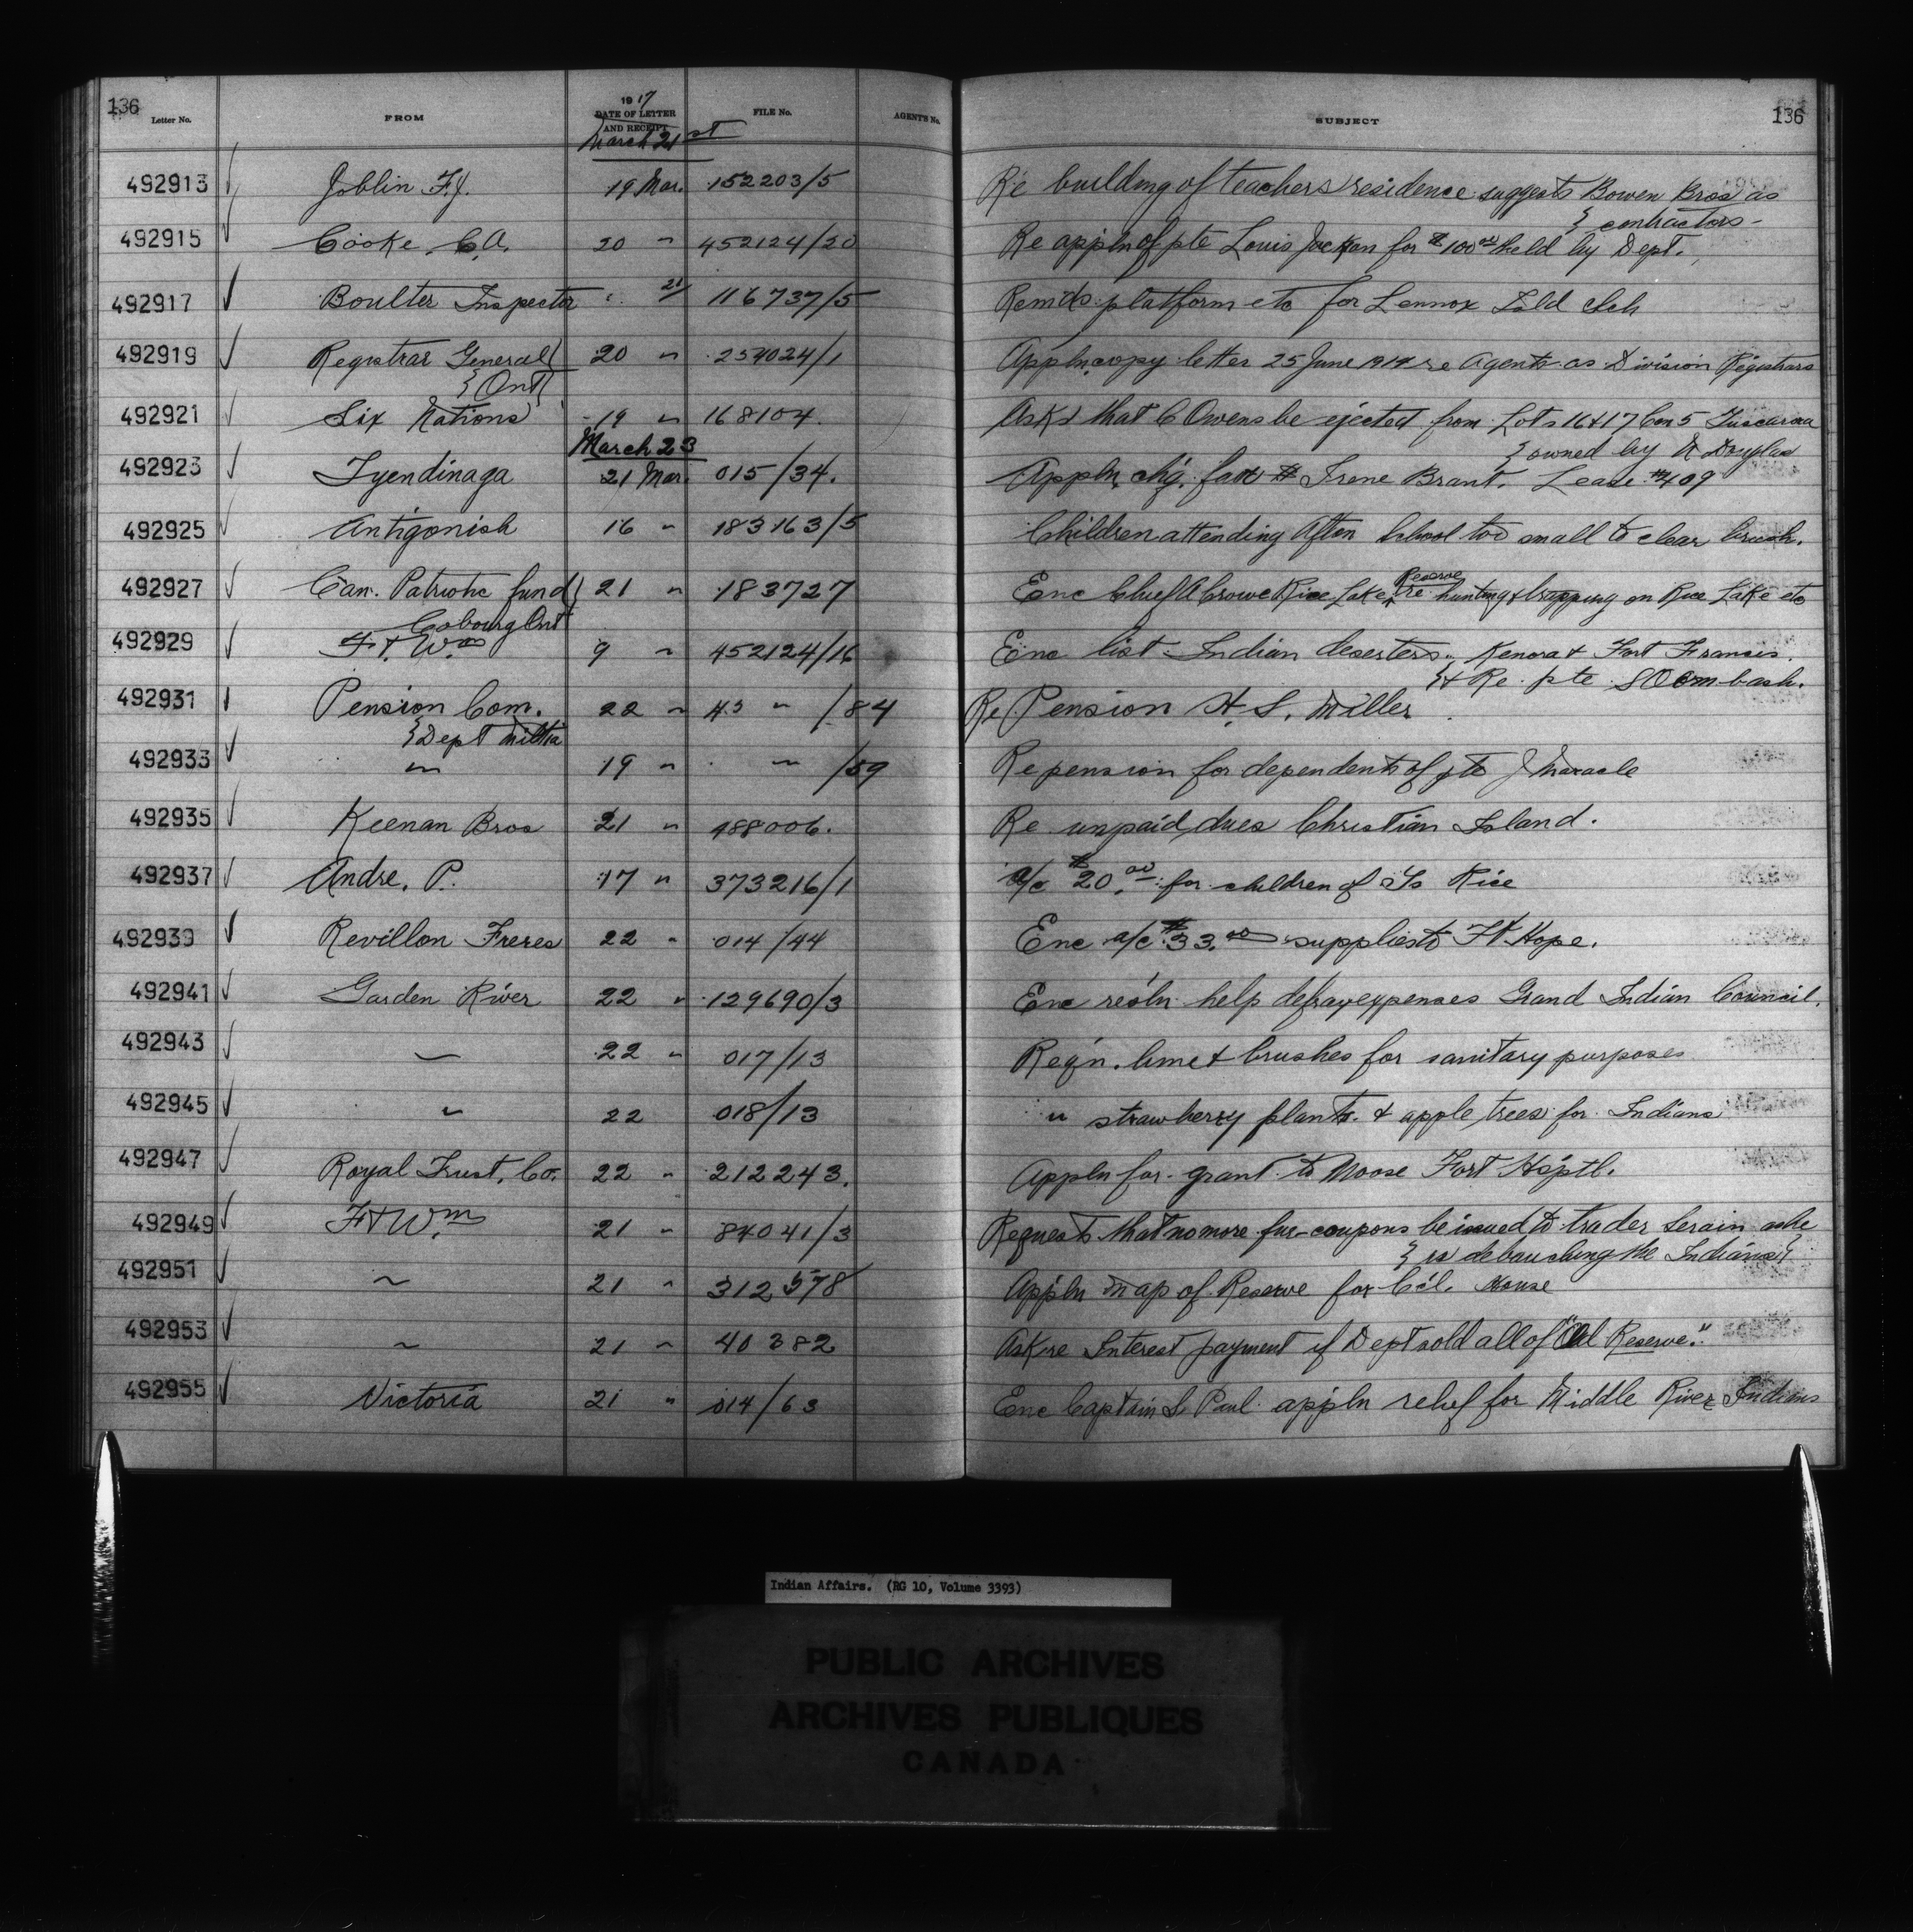 136 Letter No. FROM 1917 DATE OF LETTER AND RECEIPT FILE No. AGENTS No. SUBJECT 136
March 21st
492913 Joblin F.J. 19 Mar. 152203/5 Re building of teachers residence suggests Bowen Bros as
} contractors -
492915 Cooke C.A. 20 " 452124/20 Re appln of pte Louis Jackson for $100.00 held by Dept.
492917 Boulter Inspector 21 116737/5 Remds platform etc for Lennox Isld Sch
492919 Registrar General 20 " 254024/1 Appln copy letter 25 June 1914 re Agents as Division Registrars
} Ont
492921 Six Nations 19 " 168104. Asks that C Owens be ejected from Lots 16 & 17 Con 5 Tuscarora
} owned by Douglas
March 23
492923 Tyendinaga 21 Mar. 015/34. Appln. chq. Irene Brant. Lease #409
492925 Antigonish 16 " 183163/5 Children attending Afton School too small to clear brush.
492927 Can. Patriotic fund 21 " 183727 Enc Chief A Crowe Rice Lake Reserve re hunting & trapping on Rice Lake etc
Cobourg Ont
492929 Ft. Wm 9 " 452124/16 Enc list Indian deserters Kenora & Fort Francis.
} & Re. pte
492931 Pension Com. 22 " 43 " /84 Re Pension H. S. Miller
} Dept Militia
492933 " 19 " " /59 Re pension for dependents of pte J Maracle
492935 Keenan Bros 21 " 188006. Re unpaid dues Christian Island.
492937 Andre, P. 17 " 373216/1 a/c $20.00 for children of Rice
492939 Revillon Freres 22 " 014/44 Enc a/c $33.00 supplies to Ft Hope.
492941 Garden River 22 " 129690/3 Enc resoln help defray expenses Grand Indian Council.
492943 " 22 " 017/13 Reqn. lime & brushes for sanitary purposes
492945 " 22 018/13 " strawberry plants & apple trees for Indians
492947 Royal Trust Co. 22 " 212243. Appln for grant to Moose Fort Hsptl.
492949 Ft Wm 21 " 84041/3 Requests that no more fur-coupons be issued to trader Serain as he
} is debauching the Indians
492951 " 21 " 312578 Appln map of Reserve for Ccl. House
492953 " 21 " 40382 Ask re Interest payment if Dept sold all of "Old Reserve."
492955 Victoria 21 " 014/63 Enc Captain S Paul appln relief for Middle River Indians
Indian Affairs. (RG 10, Volume 3393)
PUBLIC ARCHIVES
ARCHIVES PUBLIQUES
CANADA